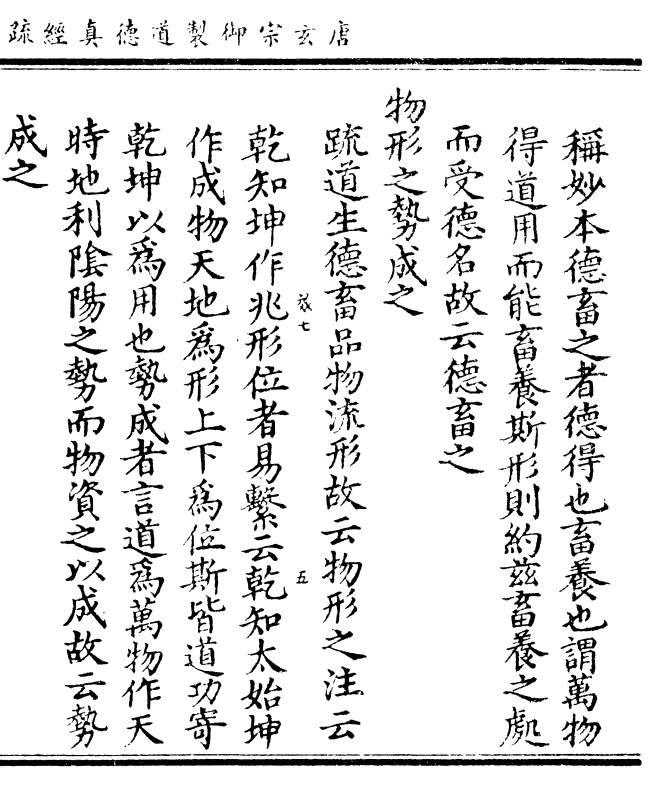 唐玄宗御製道德真經疏
稱妙本德畜之者德得也畜養也謂萬物
得道用而能畜養斯形則約兹畜養之處
而受德名故云德畜之
物形之勢成之
疏道生德畜品物流形故云物形之注云
五
乾知坤作兆形位者易繫云乾知太始坤
作成物天地爲形上下爲位斯皆道功寄
乾坤以爲用也勢成者言道爲萬物作天
時地利陰陽之勢而物資之以成故云勢
成之